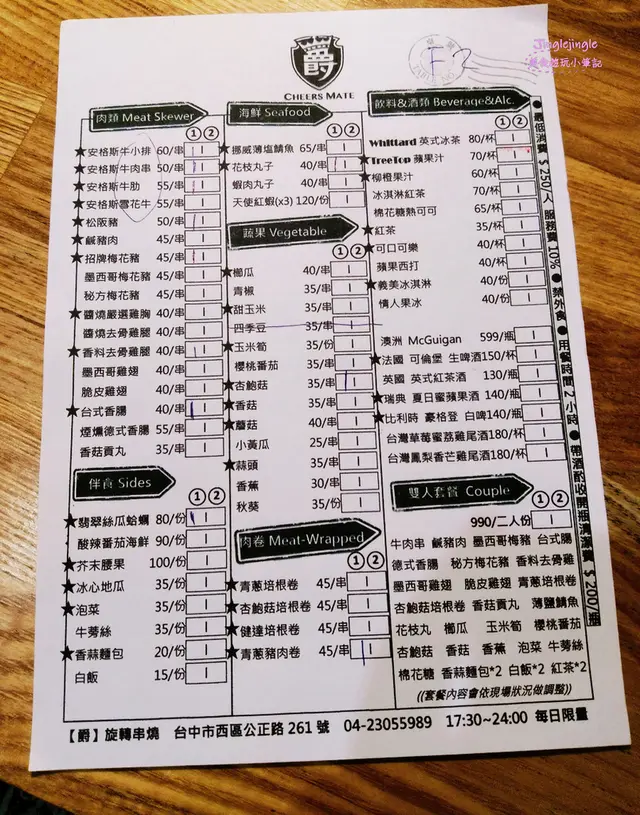 爵
CHEERS MATE
F7
Jinglejingle
肉類 Meat Skewer
① ②
★安格斯牛小排 60/串
★安格斯牛肉串 50/串
★安格斯牛肋 55/串
★安格斯雪花牛 55/串
★松阪豬 50/串
★鹹豬肉 45/串
★招牌梅花豬 45/串
墨西哥梅花豬 45/串
秘方梅花豬 45/串
★醬燒嚴選雞胸 40/串
醬燒去骨雞腿 40/串
★香料去骨雞腿 40/串
墨西哥雞翅 40/串
脆皮雞翅 40/串
★台式香腸 40/串
煙燻德式香腸 55/串
香菇貢丸 35/串
伴食 Sides
① ②
★翡翠絲瓜蛤蠣 80/份
酸辣番茄海鮮 90/份
★芥末腰果 100/份
★冰心地瓜 35/份
★泡菜 35/份
牛蒡絲 35/份
★香蒜麵包 20/份
白飯 15/份
海鮮 Seafood
① ②
★挪威薄塩鯖魚 65/串
★花枝丸子 40/串
蝦肉丸子 40/串
天使紅蝦(x3) 120/份
蔬果 Vegetable
① ②
★櫛瓜 40/串
青椒 35/串
★甜玉米 35/串
四季豆 35/串
★玉米筍 35/串
櫻桃番茄 35/串
★杏鮑菇 35/串
★香菇 35/串
★蘑菇 40/串
小黃瓜 25/串
★蒜頭 35/串
香蕉 30/串
秋葵 35/串
肉卷 Meat-Wrapped
① ②
★青蔥培根卷 45/串
★杏鮑菇培根卷 45/串
★健達培根卷 45/串
★青蔥豬肉卷 45/串
飲料&酒類 Beverage&Alc.
① ②
Whittard 英式冰茶 80/杯
★TreeTop 蘋果汁 70/杯
★柳橙果汁 60/杯
冰淇淋紅茶 70/杯
棉花糖熱可可 65/杯
★紅茶 35/杯
★可口可樂 40/杯
蘋果西打 40/杯
★義美冰淇淋 40/份
情人果冰 40/份
澳洲 McGuigan 599/瓶
★法國 可倫堡 生啤酒150/杯
英國 英式紅茶酒 130/瓶
★瑞典 夏日蜜蘋果酒 140/瓶
★比利時 豪格登 白啤140/瓶
台灣草莓蜜荔雞尾酒180/杯
台灣鳳梨香芒雞尾酒180/杯
雙人套餐 Couple
① ②
990/二人份
牛肉串 鹹豬肉 墨西哥梅豬 台式腸
德式香腸 秘方梅花豬 香料去骨雞
墨西哥雞翅 脆皮雞翅 青蔥培根卷
杏鮑菇培根卷 香菇貢丸 薄鹽鯖魚
花枝丸 櫛瓜 玉米筍 櫻桃番茄
杏鮑菇 香菇 香蕉 泡菜 牛蒡絲
棉花糖 香蒜麵包*2 白飯*2 紅茶*2
((套餐內容會依現場狀況做調整))
●最低消費 $250/人 服務費 10% ● 禁外食 ● 用餐時間 2 小時 ● 帶酒酌收開瓶清潔費 $200/瓶
【爵】旋轉串燒 台中市西區公正路 261 號 04-23055989 17:30~24:00 每日限量